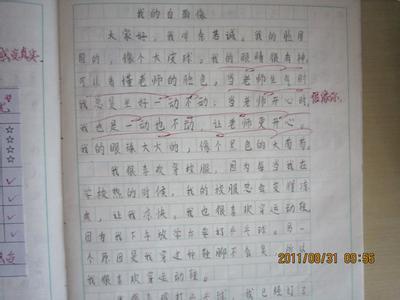 我的自画像
大家好,我叫秦若诚。我的脸圆
圆的,像个大皮球。我的眼睛很有神,
可以看懂老师的脸色。当老师生气时
我总是坐好一动不动;当老师开心时,
我也是一动也不动,让老师更开心。
我的眼珠大大的,像个黑色的大葡萄。
我很喜欢穿校服,因为每当我在
学校热的时候,我的校服总会变得清
爽,让我凉快。我也很喜欢穿运动鞋,
因为我下午放学后要打乒乓球。另一
个原因是我穿这种鞋脚不会臭,所以
我很喜欢穿运动鞋。
我已经打了
2011/08/31